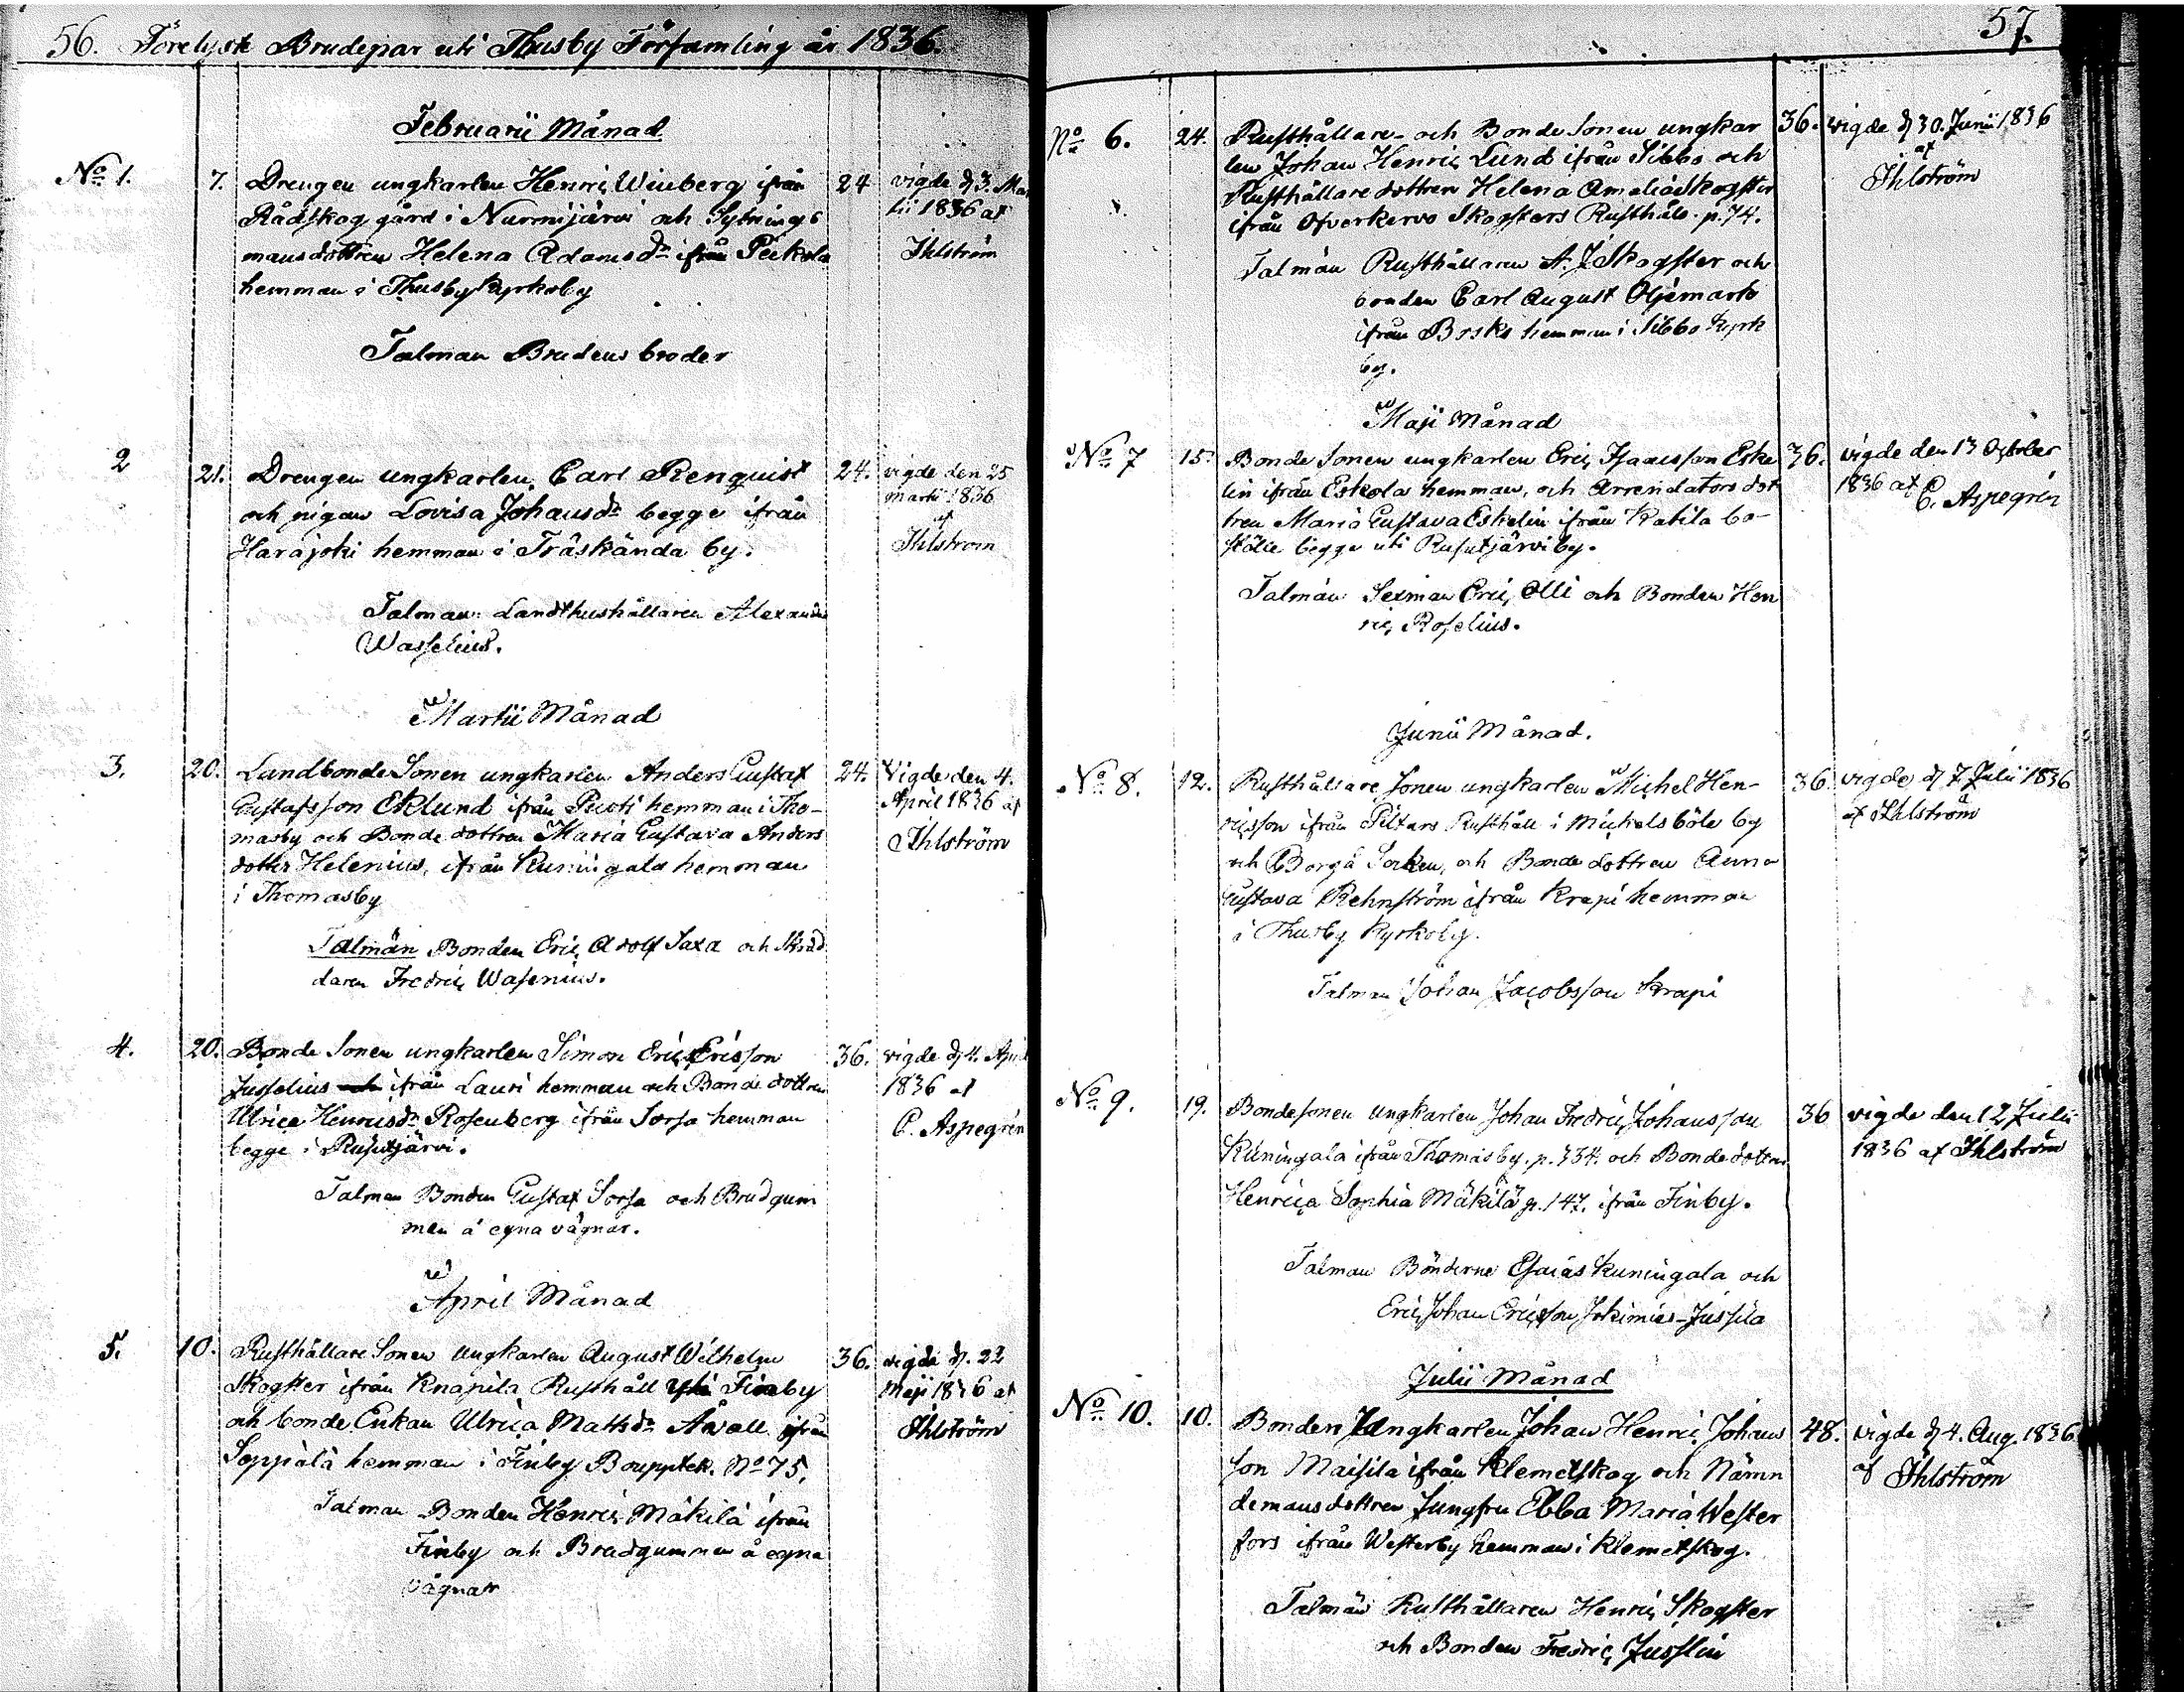 56. Förelyste Brudepar uti Thusby Församling år 1836.
Februarii Månad
No 1. 7. Drengen ungkarlen Henric Winberg ifrån 24 vigde d 3. Mar
Rådskog gård i Nurmijärvi och Sytnings tii 1836 af
mansdottren Helena Adamsdr ifrån Peckola Ihlström
hemman i Thusby Kyrkoby
Talman Brudens broder
2 21. Drengen ungkarlen Carl Renquist 24. vigde den 25
och pigan Lovisa Johansdr begge ifrån martii 1836
Harajoki hemman i Träskända by. af Ihlström
Talman Landthushållaren Alexander
Wasselius.
Martii Månad
3. 20. Landbonde Sonen ungkarlen Anders Gustaf 24. Vigde den 4.
Gustafsson Eklund ifrån hemman i Tho- April 1836 af
masby och Bonde dottren Maria Gustava Anders Ihlström
dotter Helenius, ifrån Kuningala hemman
i Thomasby
Talmän Bonden Eric Adolf Saxa och Skräd
daren Fredric Wasenius.
4. 20. Bonde Sonen ungkarlen Simon Eric Ericsson 36. vigde d 4. April
Jusselius och ifrån Lauri hemman och Bonde dottren 1836 af
Ulrica Henricsdr Rosenberg ifrån Sorsa hemman C. Aspegrén
begge i Rusutjärvi.
Talman Bonden Gustaf Sorsa och Brudgum
men å egna vägnar.
April Månad
5. 10. Rusthållare Sonen ungkarlen August Wilhelm 36. vigde d. 22
Skogster ifrån Knapila Rusthåll uti Finby Maji 1836 af
och bonde Enkan Ulrica Mattsdr Åvall ifrån Ihlström
Soppälä hemman i Finby Boupptek. No 75.
Talman Bonden Henric Mäkilä ifrån
Finby och Brudgummen å egna
vägnar
57.
No 6. 24. Rusthållare- och Bonde Sonen ungkar 36. vigde d 30. Junii 1836
len Johan Henric Lund ifrån Sibbo och af
Rusthållare dottren Helena Amalia Skogster Ihlström
ifrån Ofverkervo Skogsters Rusthåll. p. 74.
Talmän Rusthållaren A. J Skogster och
bonden Carl August Öhjemark
ifrån Bosks hemman i Sibbo Kyrk
by.
Maji Månad
No 7 15. Bonde Sonen ungkarlen Eric Isaacsson Eske 36. vigde den 13 October
lin ifrån Eskola hemman, och Arrendators dot 1836 af C. Aspegrén
tren Maria Gustava Eskelin ifrån Katila bo-
ställe begge uti Rusutjärvi by.
Talmän Sexman Eric Olli och Bonden Hen
ric Roselius.
Junii Månad.
No 8. 12. Rusthållare Sonen ungkarlen Michel Hen- 36. vigde d 7 Julii 1836
ricsson ifrån Piltars Rusthåll i Mickelsböle by af Ihlström
och Borgå Socken, och Bonde dottren Anna
Gustava Rehnström ifrån Krapi hemman
i Thusby Kyrkoby.
Talman Johan Jacobsson Krapi
No 9. 19. Bondesonen ungkarlen Johan Fredric Johansson 36 vigde den 12 Julii
Kuningala ifrån Thomasby. p. 334. och Bonde dottren 1836 af Ihlström
Henrica Sophia Mäkilä p. 147. ifrån Finby.
Talman Bönderne Esaias Kuningala och
Eric Johan Ericsson Jokimies-Jussila
Julii Månad
No 10. 10. Bonden Ungkarlen Johan Henric Johans 48. vigde d 4. Aug. 1836
son Maisila ifrån Klemetskog och Nämn af Ihlström
demansdottren Jungfru Ebba Maria Wester
fors ifrån Westerby hemman i Klemetskog.
Talmän Rusthållaren Henric Skogster
och Bonden Fredric Jusslin